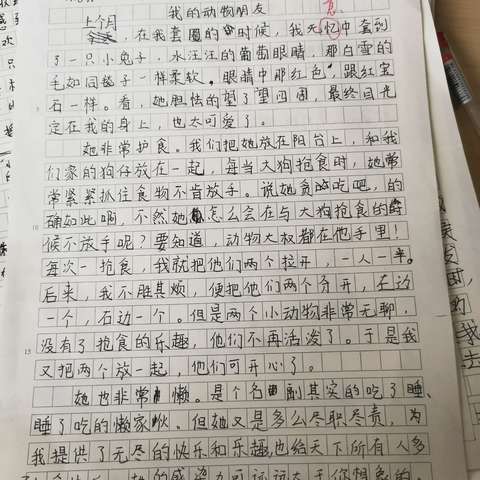 我的动物朋友
上个月，在我套圈的时候，我无忆中套到
意
了一只小兔子，水汪汪的葡萄眼睛，那白雪的
毛如同毯子一样柔软。眼睛中那红色，跟红宝
石一样。看，她胆怯的望了望四周，最终目光
定在我的身上，也太可爱了。
她非常护食。我们把她放在阳台上，和我
们家的狗仔放在一起，每当大狗抢食时，她常
常紧紧抓住食物不肯放手。说她贪吃吧，的
确如此啊，不然她怎么会在与大狗抢食的时
候不放手呢？要知道，动物大权都在他手里！
每次一抢食，我就把他们两个拉开，一人一半。
后来，我不胜其烦，便把他们两个分开，左边
一个，右边一个。但是两个小动物非常无聊，
没有了抢食的乐趣，他们不再活泼了。于是我
又把两个放一起，他们可开心了。
她也非常懒。是个名副其实的吃了睡、
睡了吃的懒家伙。但她又是多么尽职尽责，为
我提供了无尽的快乐和乐趣，也给天下所有人多